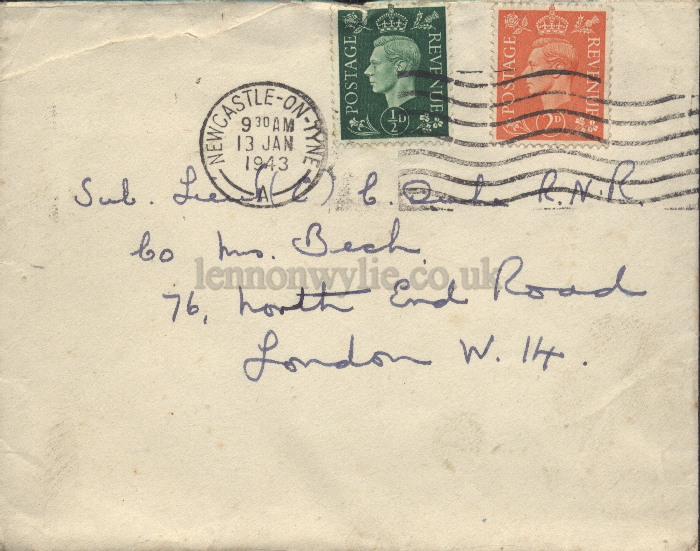 POSTAGE REVENUE
½D
POSTAGE REVENUE
2D
NEWCASTLE-ON-TYNE
9 30 AM
13 JAN
1943
A
Sub. Lieut (E) C. Duke R.N.R.
c/o Mrs. Bech
lennonwylie.co.uk
76, North End Road
London W. 14.